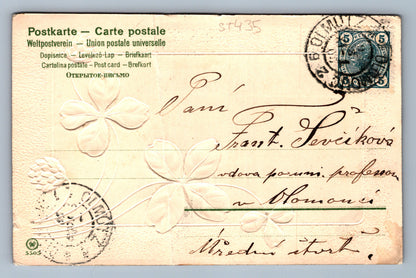 Postkarte – Carte postale
ST435
Weltpostverein – Union postale universelle
Dopisnice – Levelező-Lap – Briefkaart
Cartolina postale – Post card – Brefkort
Открытое-письмо
5
5
2 b OLMÜTZ
Paní
Frant. Ševčíková
vdova po
professor
v Olomouci
OLMÜTZ
Úřední čtvrť